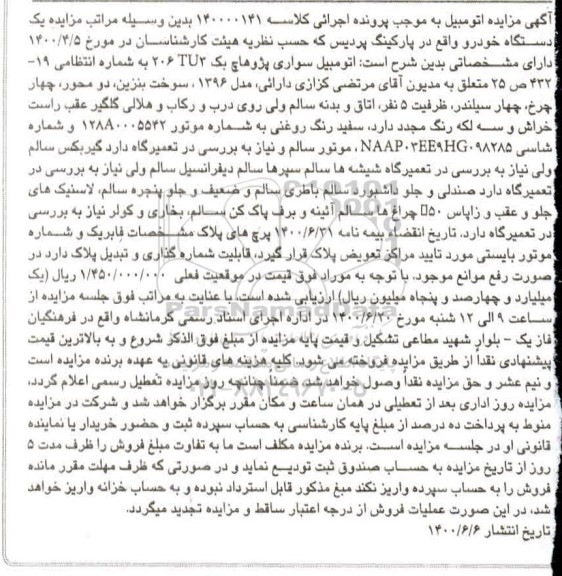 آگهی مزایده اتومبیل به موجب پرونده اجرائی کلاسه ۱۴۰۰۰۰۱۴۱ بدین وسیله مراتب مزایده یک
دستگاه خودرو واقع در پارکینگ پردیس که حسب نظریه هیئت کارشناسان در مورخ ۱۴۰۰/۴/۵
دارای مشخصاتی بدین شرح است: اتومبیل سواری پژوهاچ بک ۲۰۶ TU۳ به شماره انتظامی ۱۹-
۴۳۲ ص ۲۵ متعلق به مدیون آقای مرتضی کزازی دارائی، مدل ۱۳۹۶ ، سوخت بنزین، دو محور، چهار
چرخ، چهار سیلندر، ظرفیت ۵ نفر، اتاق و بدنه سالم ولی روی درب و رکاب و هلالی گلگیر عقب راست
خراش و سه لکه رنگ مجدد دارد، سفید رنگ روغنی به شماره موتور ۱۲۸A۰۰۰۵۵۴۲ و شماره
شاسی NAAP۰۳EE۹HG۰۹۸۲۸۵ ، موتور سالم و نیاز به بررسی در تعمیرگاه دارد گیربکس سالم
ولی نیاز به بررسی در تعمیرگاه شیشه ها سالم سپرها سالم دیفرانسیل سالم ولی نیاز به بررسی در
تعمیرگاه دارد صندلی و جلو داشبورد سالم باطری سالم و ضعیف و جلو پنجره سالم، لاستیک های
جلو و عقب و زاپاس ۵۰٪ چراغ ها سالم آئینه و برف پاک کن سالم، بخاری و کولر نیاز به بررسی
در تعمیرگاه دارد. تاریخ انقضاء بیمه نامه ۱۴۰۰/۶/۳۱ پرچ های پلاک مشخصات فابریک و شماره
موتور بایستی مورد تایید مراکز تعویض پلاک قرار گیرد، قابلیت شماره گذاری و تبدیل پلاک دارد در
صورت رفع موانع موجود. با توجه به موارد فوق قیمت در موقعیت فعلی ۱/۴۵۰/۰۰۰/۰۰۰ ریال (یک
میلیارد و چهارصد و پنجاه میلیون ریال) ارزیابی شده است. با عنایت به مراتب فوق جلسه مزایده از
ساعت ۹ الی ۱۲ شنبه مورخ ۱۴۰۰/۶/۲۰ در اداره اجرای اسناد رسمی کرمانشاه واقع در فرهنگیان
فاز یک - بلوار شهید مطاعی تشکیل و قیمت پایه مزایده از مبلغ فوق الذکر شروع و به بالاترین قیمت
پیشنهادی نقداً از طریق مزایده فروخته می شود. کلیه هزینه های قانونی به عهده برنده مزایده است
و نیم عشر و حق مزایده نقداً وصول خواهد شد ضمنا چنانچه روز مزایده تعطیل رسمی اعلام گردد،
مزایده روز اداری بعد از تعطیلی در همان ساعت و مکان مقرر برگزار خواهد شد و شرکت در مزایده
منوط به پرداخت ده درصد از مبلغ پایه کارشناسی به حساب سپرده ثبت و حضور خریدار یا نماینده
قانونی او در جلسه مزایده است. برنده مزایده مکلف است ما به تفاوت مبلغ فروش را ظرف مدت ۵
روز از تاریخ مزایده به حساب صندوق ثبت تودیع نماید و در صورتی که ظرف مهلت مقرر مانده
فروش را به حساب سپرده واریز نکند مبغ مذکور قابل استرداد نبوده و به حساب خزانه واریز خواهد
شد، در این صورت عملیات فروش از درجه اعتبار ساقط و مزایده تجدید میگردد.
تاریخ انتشار ۱۴۰۰/۶/۶